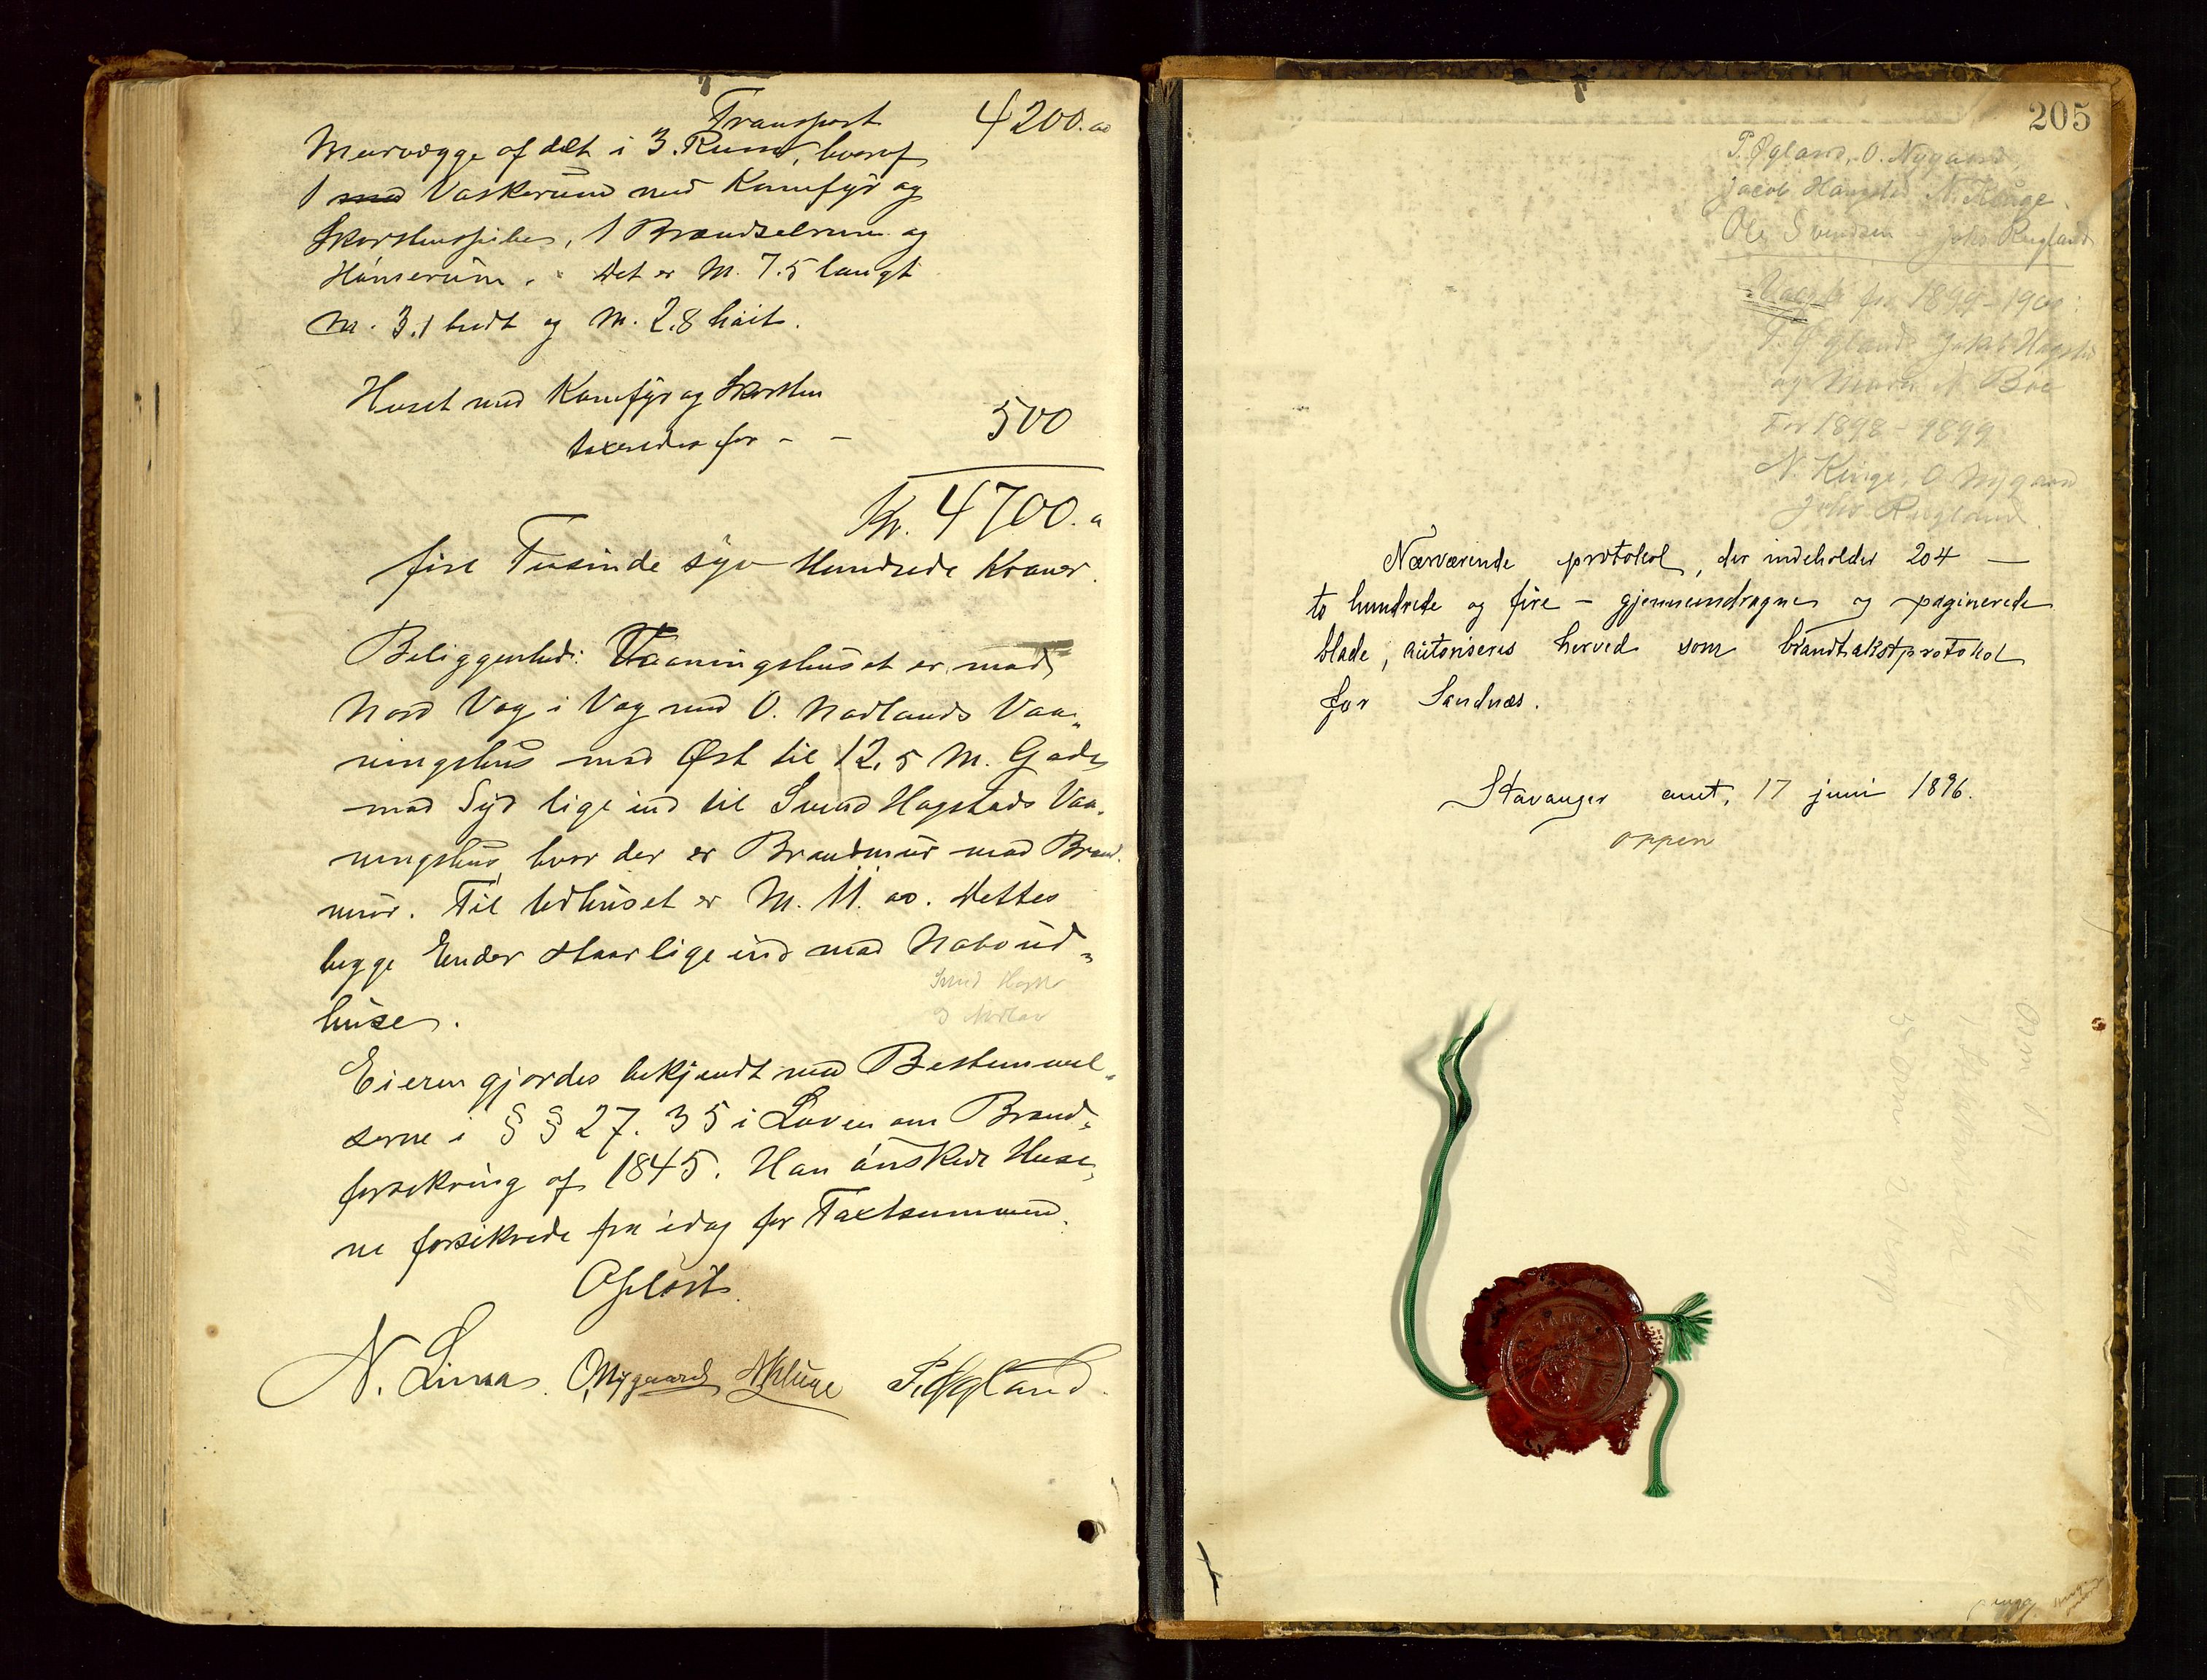 Transport 4200.00
Murvægge afdelt i 3. Rum, hvoraf
1 med Vaskerum med Komfyr og
Skorstenspibe, 1 Brændselrum og
Hønserum. Det er M. 7.5 langt
M. 3.1 bredt og M. 2.8 høit.
Huset med Komfyr og Skorsten
taxeredes for - - 500
Kr. 4700.
fire Tusinde syv Hundrede Kroner.
Beliggenhed: Vaaningshuset er mod
Nord Væg i Væg med O. Nødlands Vaa-
ningshus mod Øst til 12,5 M. Gade
mod Syd lige ind til Svend Hagstads Vaa-
ningshus, hvor der er Brandmur mod Brand-
mur. Til Udhuset er M. 11.00. Dettes
begge Ender staar lige ind mod Naboud-
huse.
Eieren gjordes bekjendt med Bestemmel-
serne i § § 27. 35 i Loven om Brand-
forsikring af 1845. Han ønskede Huse-
ne forsikrede fra idag for Taxtsummen.
Afsluttet
N. Limaa. O. Nygaard N. Kluge P. Øgland.
205
P. Øgland, O. Nygaard,
Jacob Hagstad N. Kluge.
Ole Svendsen Johs Rugland
Valgte for 1899-1900:
P. Øgland Jakob Hagstad
og Murm. N. Boe
For 1898-1899
N. Kluge, O Nygaard
Johs Rugland.
Nærværende protokol, der indeholder 204 —
to hundrede og fire - gjennemdragne og paginerede
blade, autoriseres herved som brandtakstprotokol
for Sandnæs.
Stavanger amt, 17 juni 1896.
Oppen